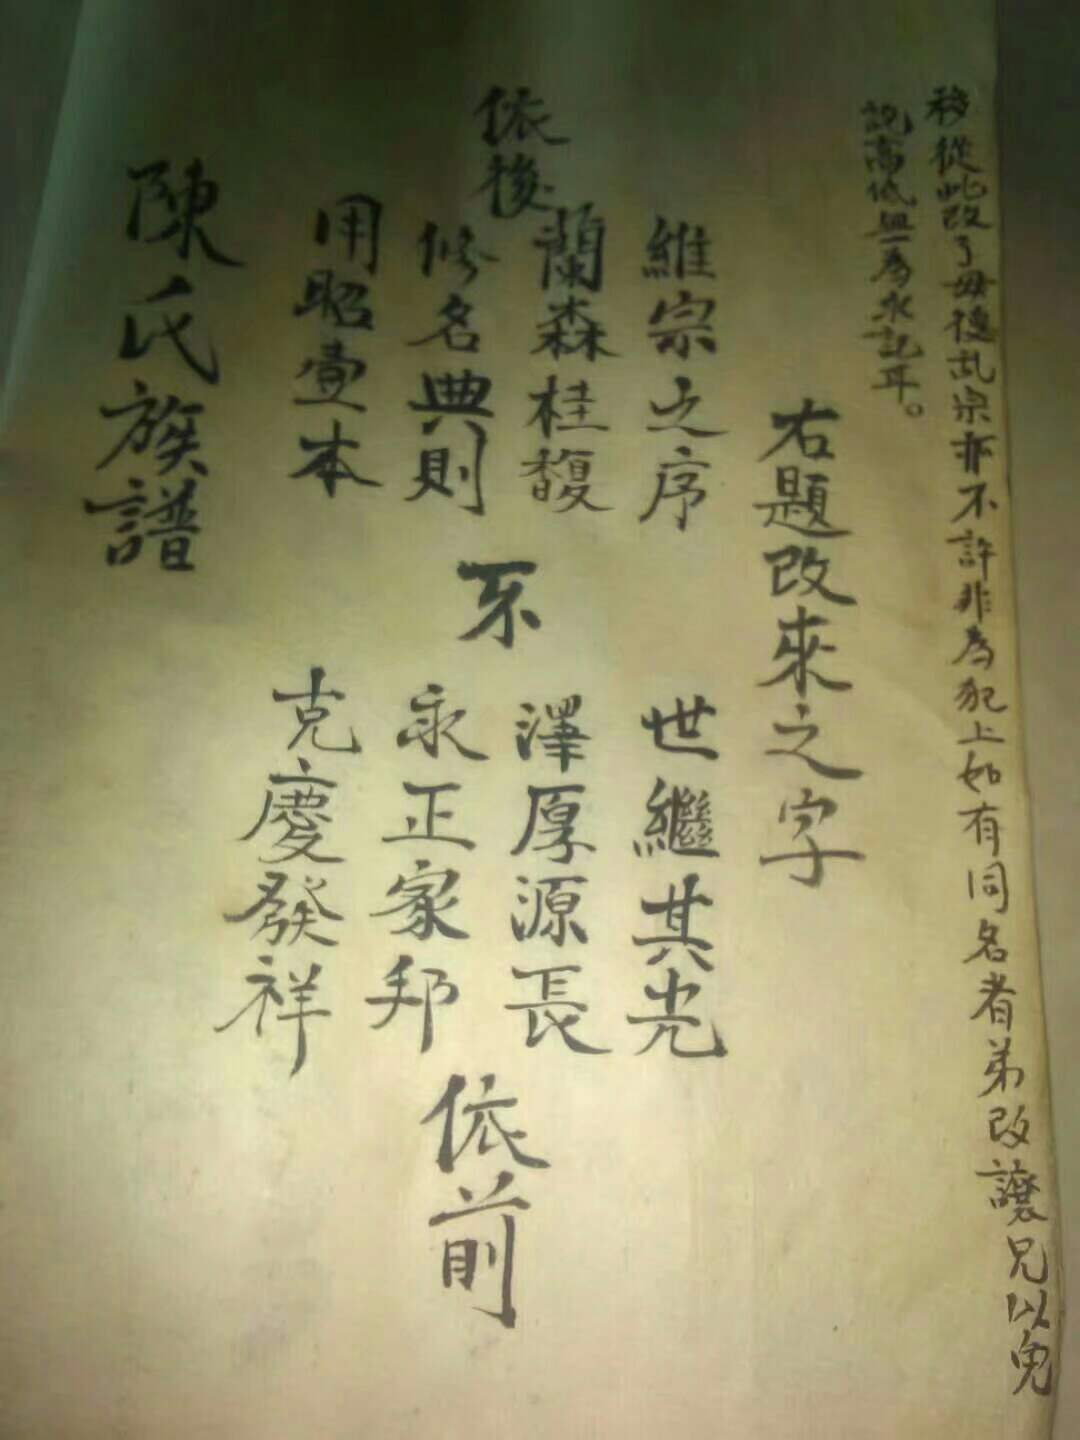 移從此改了毋得乱宗亦不許非為犯上如有同名者弟改讓兄以免
説高低無為永記耳。
右題改來之字
維宗之序
世繼其光
蘭森桂馥
澤厚源長
依後
修名典則
永正家邦
依前
用昭壹本
克慶發祥
陳氏族譜